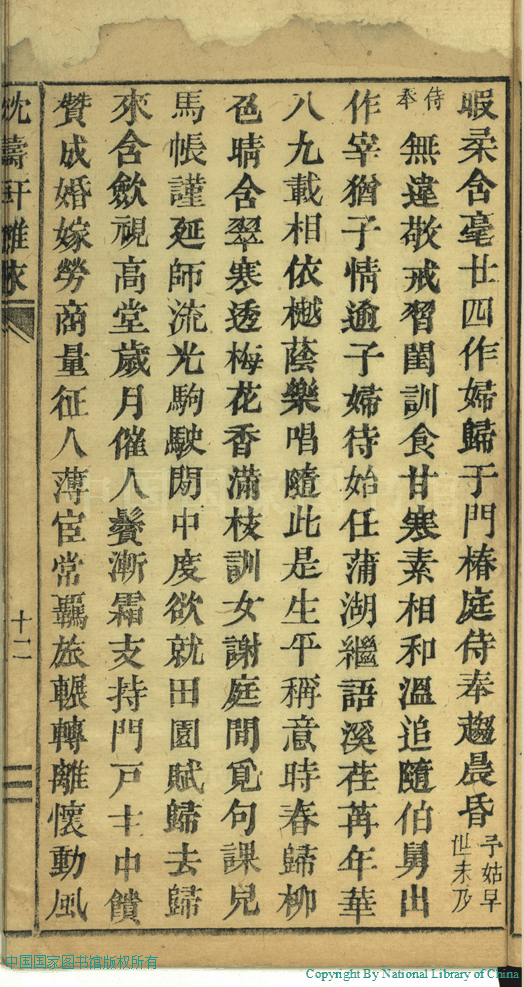 暇柔含毫廿四作婦歸于門椿庭侍奉趨晨昏予姑早世未乃
侍奉無違敬戒習閨訓食甘寒素相和溫追隨伯舅出
作宰猶子情逾子婦待始任蒲湖繼語溪荏苒年華
八九載相依樾蔭樂唱隨此是生平稱意時春歸柳
色晴含翠寒透梅花香滿枝訓女謝庭間覓句課兒
馬帳謹延師流光駒駛閒中度欲就田園賦歸去歸
來含歛視高堂歲月催人鬢漸霜支持門戶主中饋
贊成婚嫁勞商量征人薄宦常羈旅輾轉離懷動風
枕濤軒雜
十二
中国国家图书馆版权所有
Copyright By National Library of China